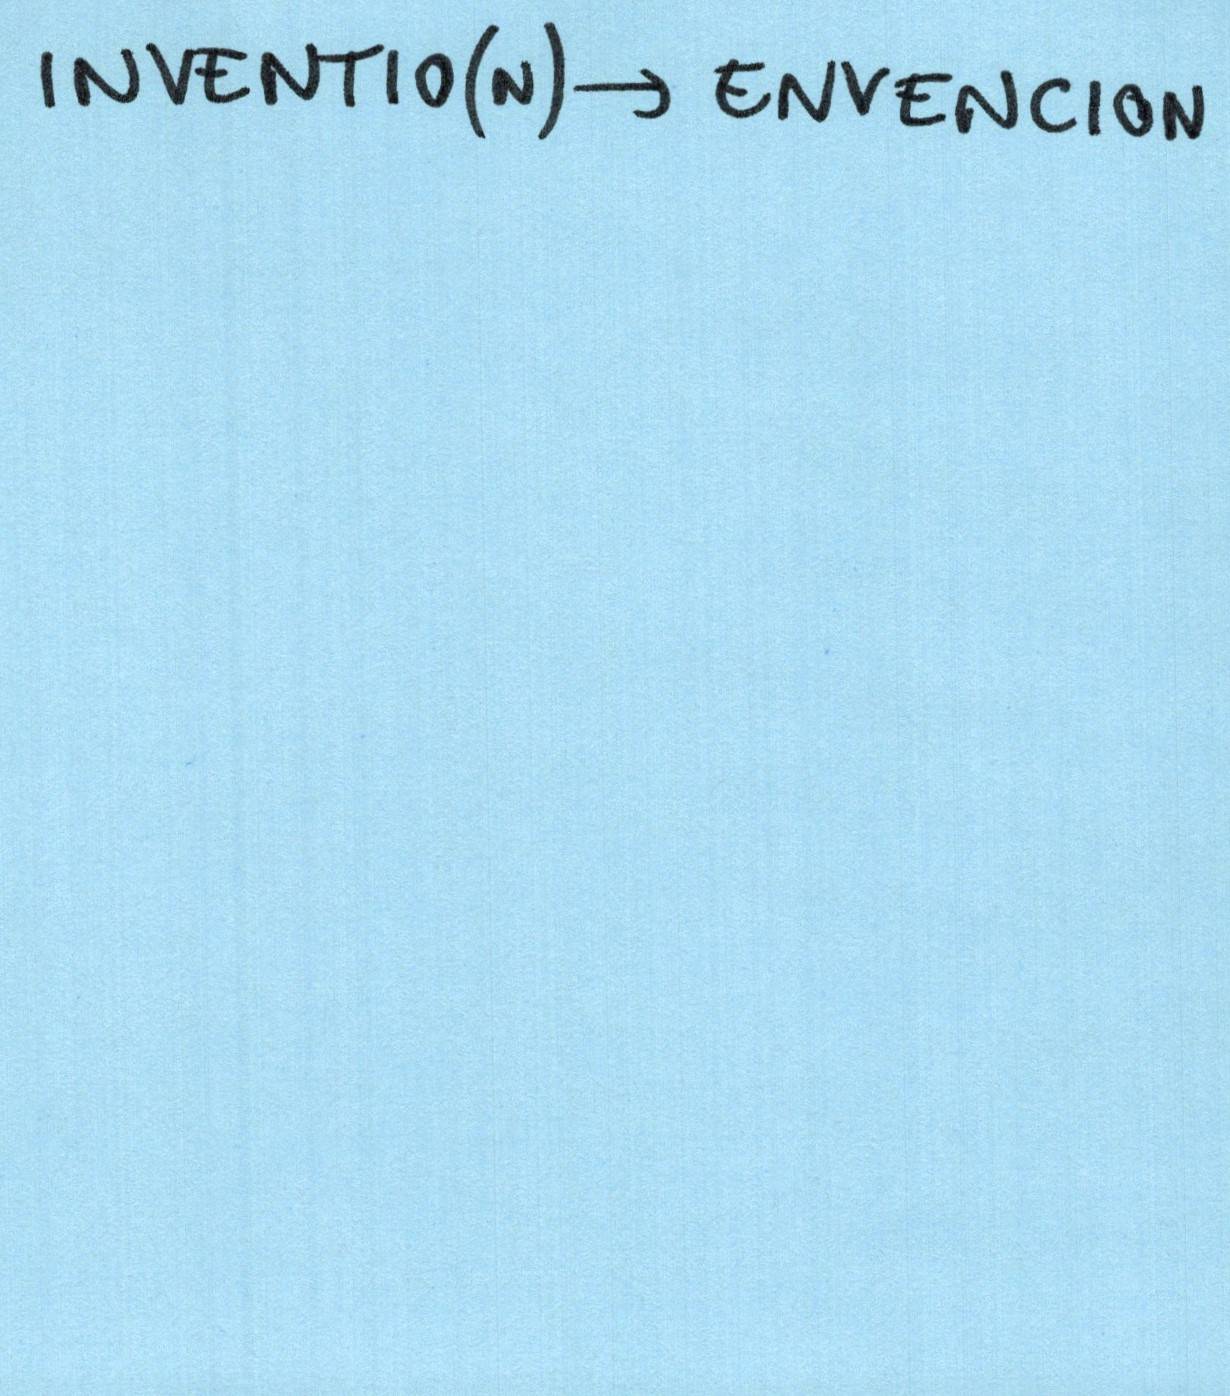 INVENTIO(N) → ENVENCION